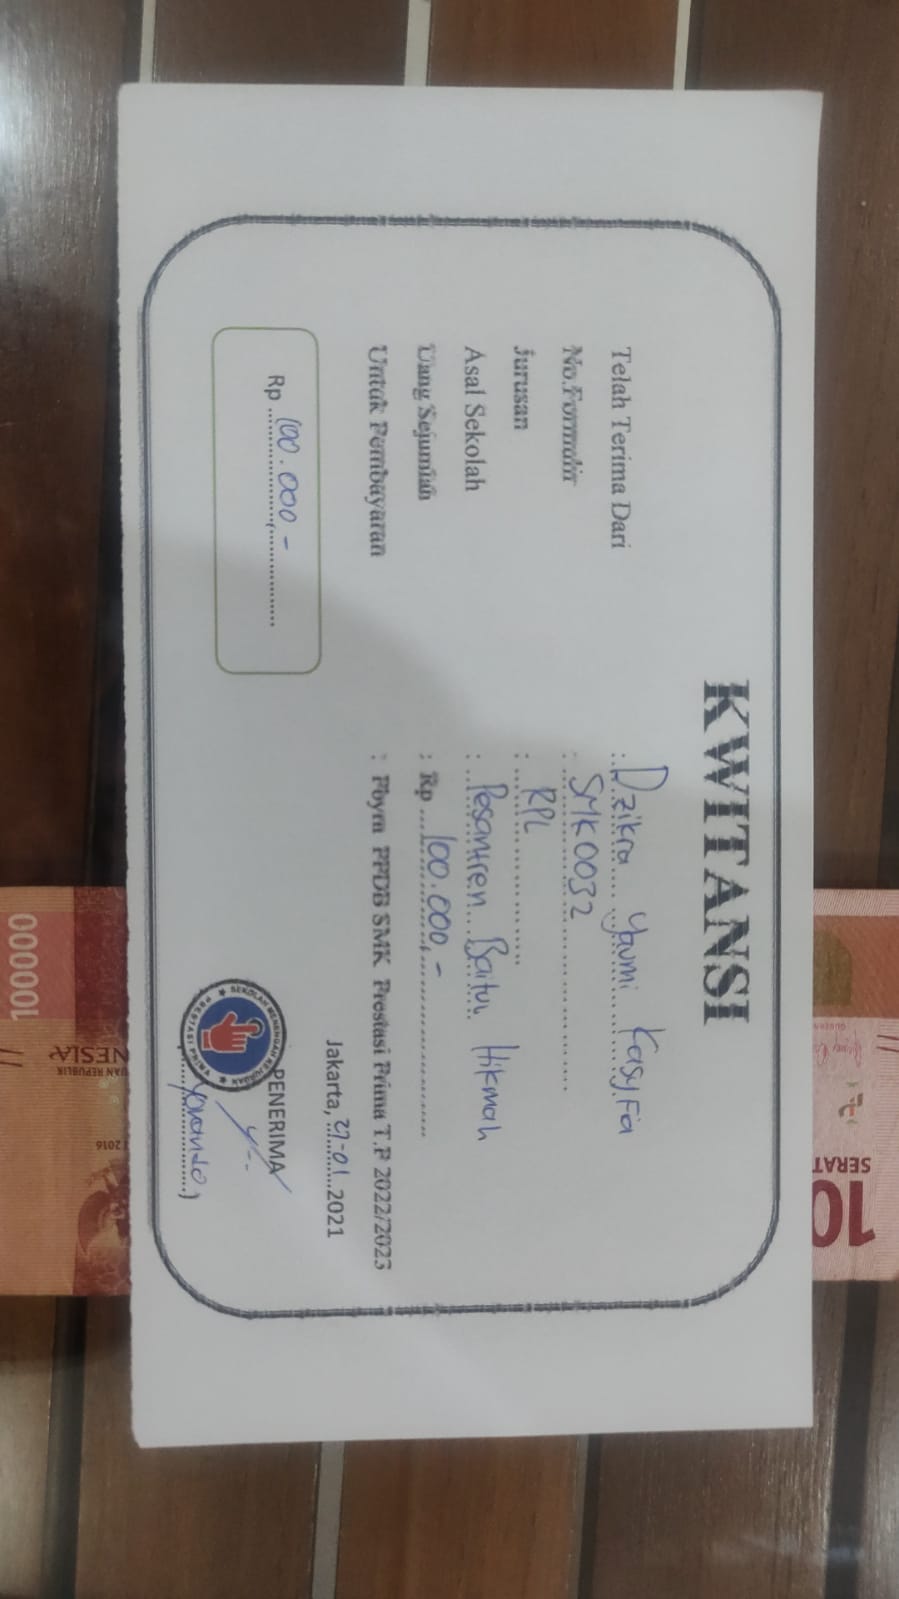 KWITANSI
Telah Terima Dari : Dzikra Yaumi Kasyfia
No.Formulir : SMK0032
Jurusan : RPL
Asal Sekolah : Pesantren Baitul Hikmah
Uang Sejumlah : Rp 100.000,-
Untuk Pembayaran : PPDB SMK Prestasi Prima T.P 2022/2023
Jakarta, 21-01 2021
Rp 100.000 -
PENERIMA
SEKOLAH MENENGAH KEJURUAN
PRESTASI PRIMA
100000
NESIA
2016
SERAT
10